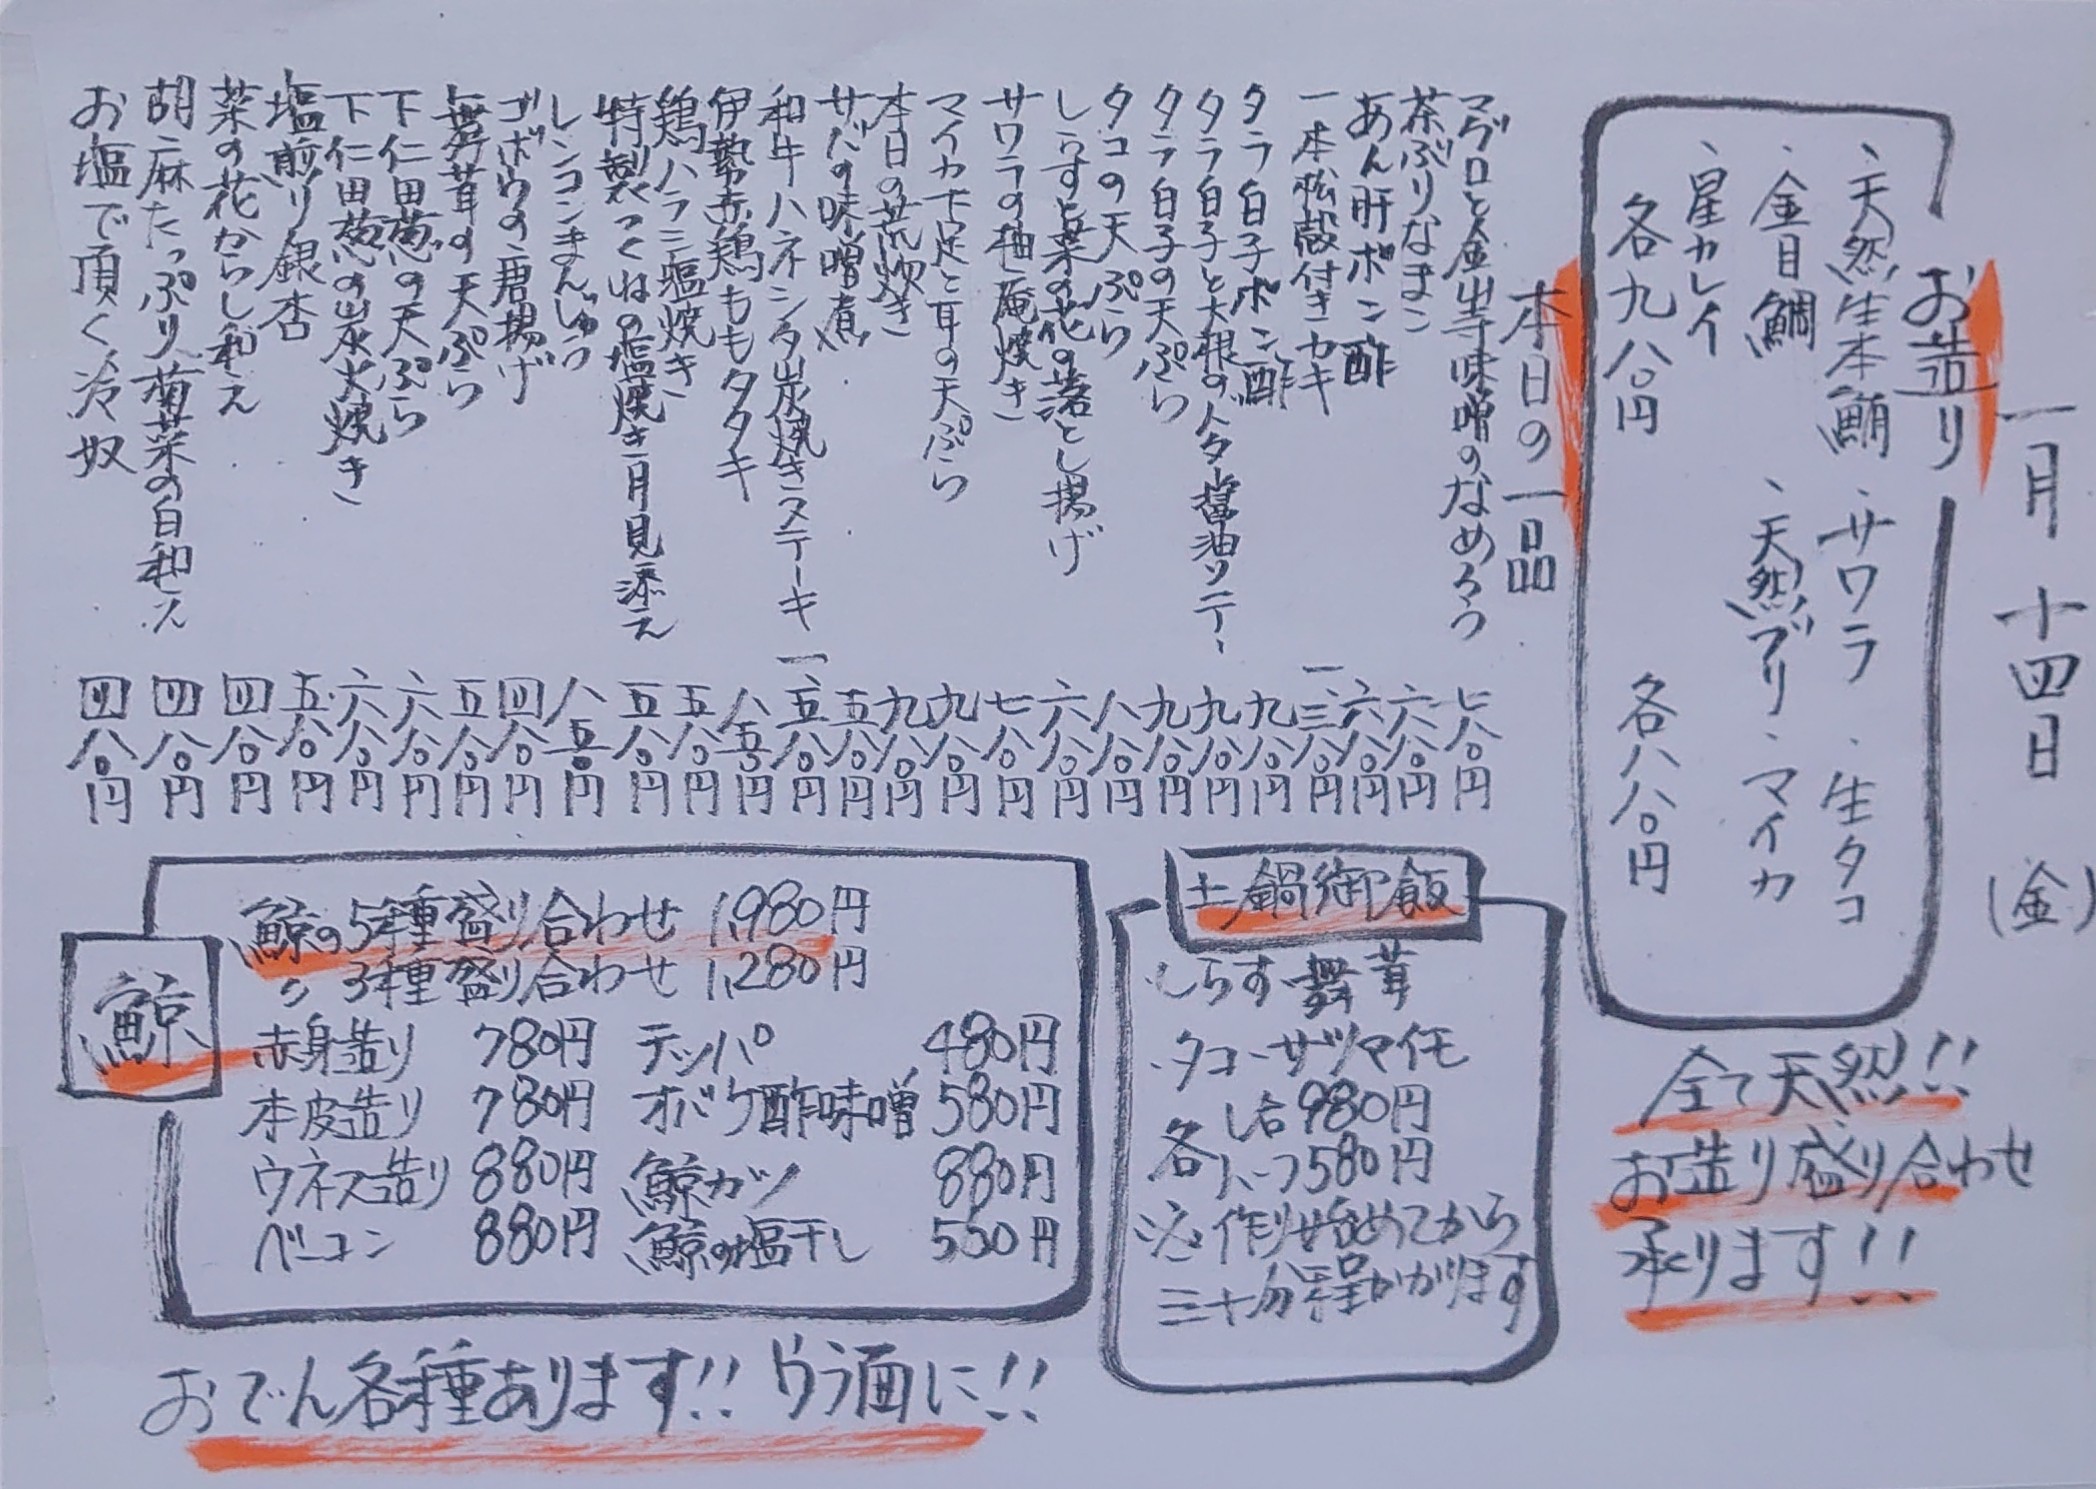 一月十四日(金)
お造り
・天然生本鮪 ・サワラ ・生タコ
・金目鯛 ・天然ブリ ・マイカ
・星カレイ
各九八〇円 各八八〇円
全て天然!!
お造り盛り合わせ
承ります!!
本日の一品
マグロと金山寺味噌のなめろう 七八〇円
茶ぶりなまこ 六八〇円
あん肝ポン酢 六八〇円
一本松殻付きカキ 一、三八〇円
タラ白子ポン酢 九八〇円
タラ白子と大根のバター醤油ソテー 九八〇円
タラ白子の天ぷら 九八〇円
タコの天ぷら 八八〇円
しらすと菜の花の落とし揚げ 六八〇円
サワラの柚庵焼き 七八〇円
マイカ下足と耳の天ぷら 九八〇円
本日の荒炊き 九八〇円
サバの味噌煮 五八〇円
和牛ハネシタ炭焼きステーキ 一、五八〇円
伊勢赤鶏ももタタキ 八五〇円
鶏ハラミ塩焼き 五八〇円
特製つくねの塩焼き 月見添え 五八〇円
レンコンまんじゅう 八五〇円
ゴボウの唐揚げ 四八〇円
舞茸の天ぷら 五八〇円
下仁田葱の天ぷら 六八〇円
下仁田葱の炭火焼き 六八〇円
塩煎り銀杏 五八〇円
菜の花からし和え 四八〇円
胡麻たっぷり菊菜の白和え 四八〇円
お塩で頂く冷奴 四八〇円
土鍋御飯
・しらす・舞茸
・タコ・サツマイモ
各 1合980円
ハーフ580円
※作り始めてから
三十分程かかります
鯨
鯨の5種盛り合わせ 1,980円
〃 3種盛り合わせ 1,280円
赤身造り 780円 テッパ 480円
本皮造り 780円 オバケ酢味噌 580円
ウネス造り 880円 鯨カツ 880円
ベーコン 880円 鯨の塩干し 550円
おでん各種あります!! ウラ面に!!